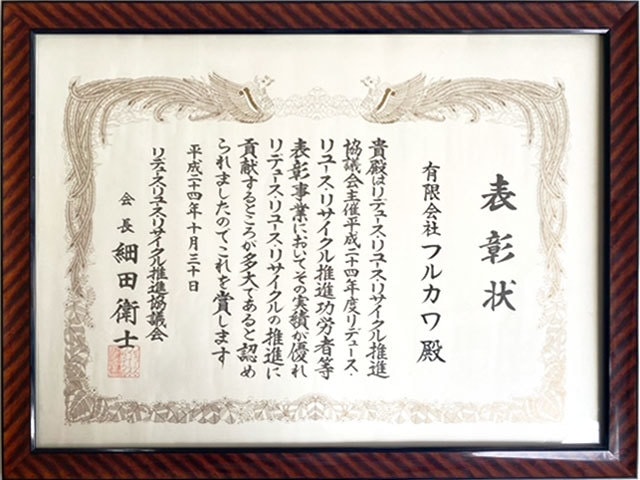 表彰状
有限会社フルカワ殿
貴殿はリデュース・リユース・リサイクル推進
協議会主催平成二十四年度リデュース・
リユース・リサイクル推進功労者等
表彰事業においてその実績が優れ
リデュース・リユース・リサイクルの推進に
貢献するところが多大であると認め
られましたのでこれを賞します
平成二十四年十月三十日
リデュース・リユース・リサイクル推進協議会
会長 細田衛士